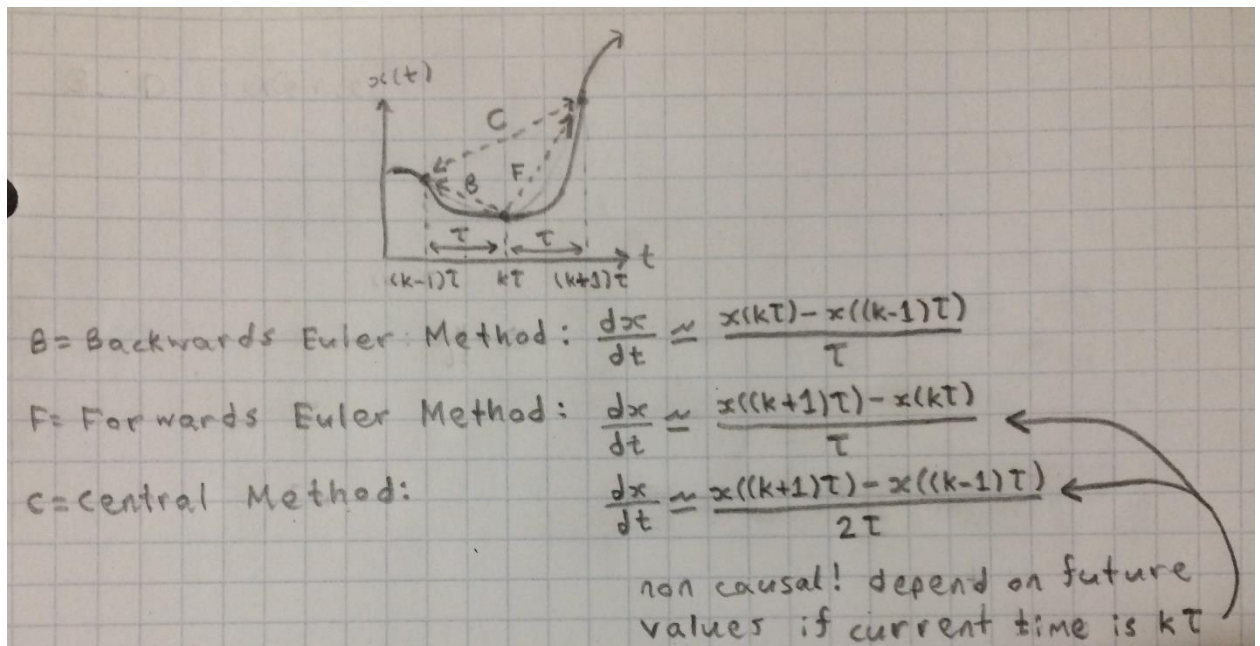 x(t)
C
B
F
τ
τ
t
(k-1)τ kτ (k+1)τ
B= Backwards Euler Method: dx/dt ≃ x(kτ)-x((k-1)τ)/τ
F= Forwards Euler Method: dx/dt ≃ x((k+1)τ)-x(kτ)/τ
C=central Method: dx/dt ≃ x((k+1)τ)-x((k-1)τ)/2τ
non causal! depend on future
values if current time is kτ